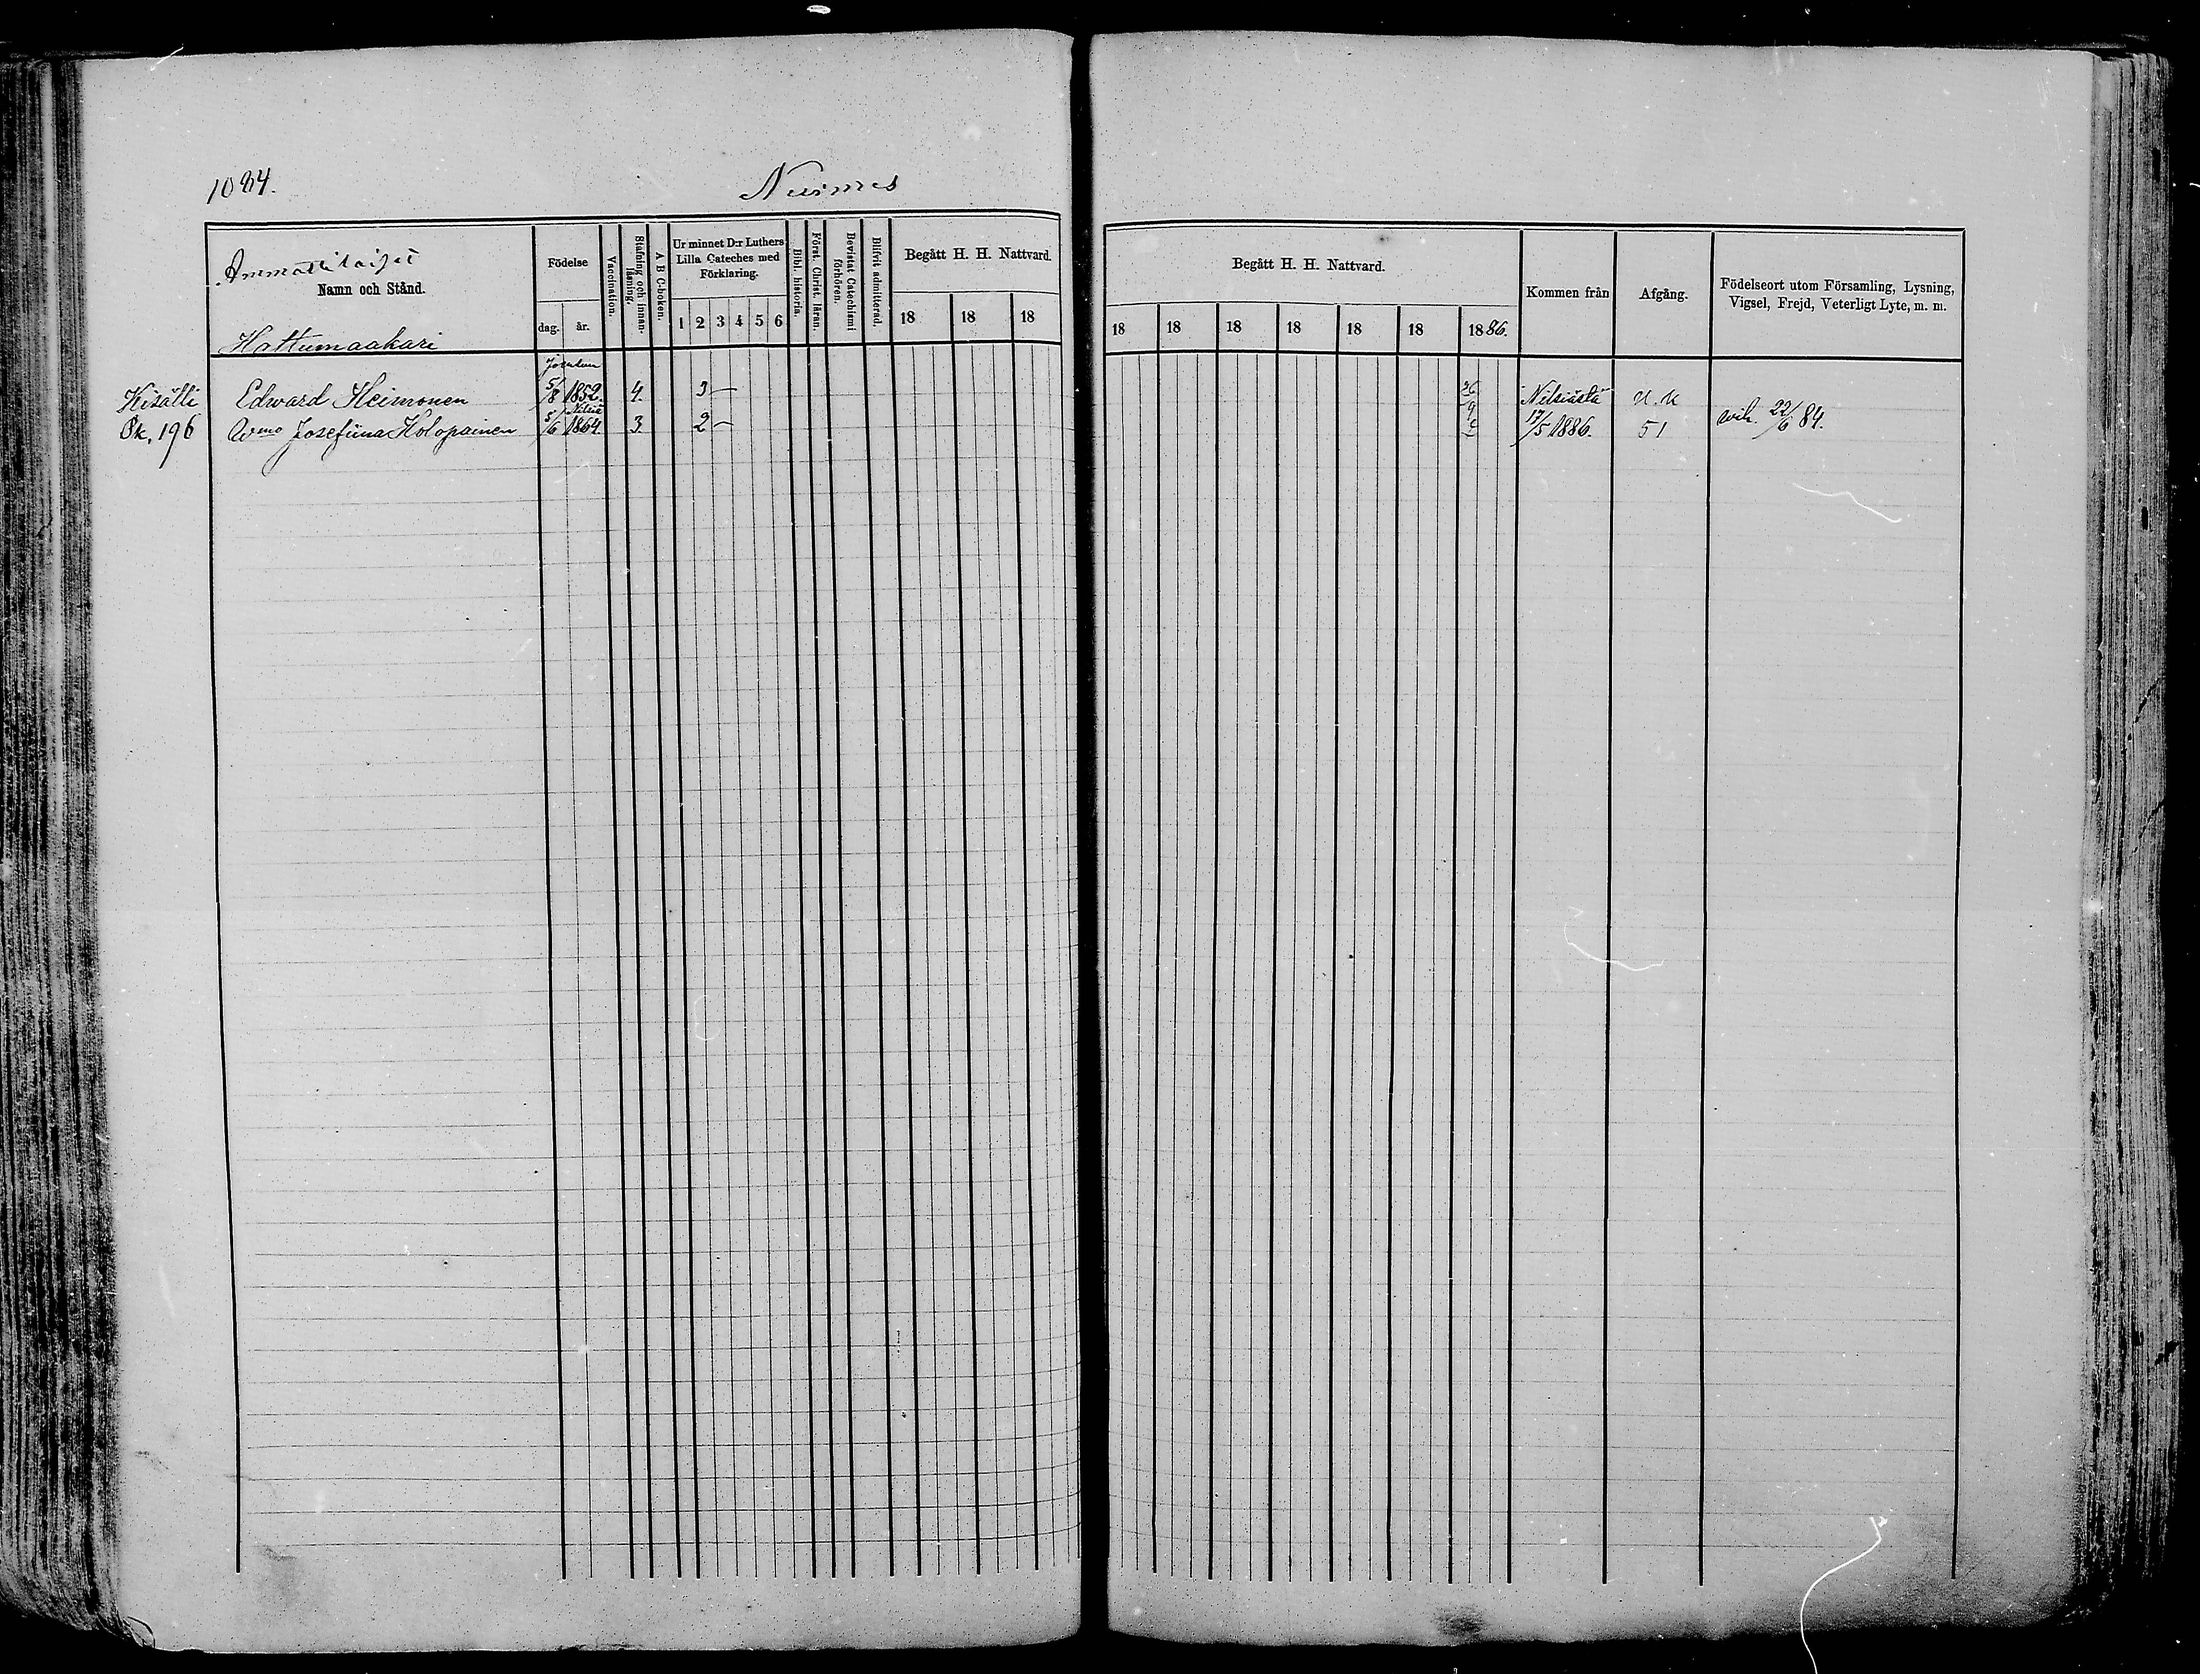 1084.
Nurmes
Ammattilaiset
Namn och Stånd.
Hattumaakari
Födelse
dag.
år.
Vaccination.
Stafning och innan-
läsning.
A B C-boken.
Ur minnet D:r Luthers
Lilla Cateches med
Förklaring.
1 2 3 4 5 6
Bibl. historia.
Först. Christ. läran.
Bevistat Catechismi
förhören.
Blifvit admitterad.
Begått H. H. Nattvard.
18 18 18
Begått H. H. Nattvard.
18 18 18 18 18 18 1886.
Kommen från
Afgång.
Födelseort utom Församling, Lysning,
Vigsel, Frejd, Veterligt Lyte, m. m.
Joensuu
Kisälli Edward Heimonen 5/8 1852. 4. 3 — Nilsiästä U. K
Nilsiä
Sk. 196 Wmo Josefiina Holopainen 5/6 1864. 3. 2 — 17/5 1886. 51 wih. 22/6 84.